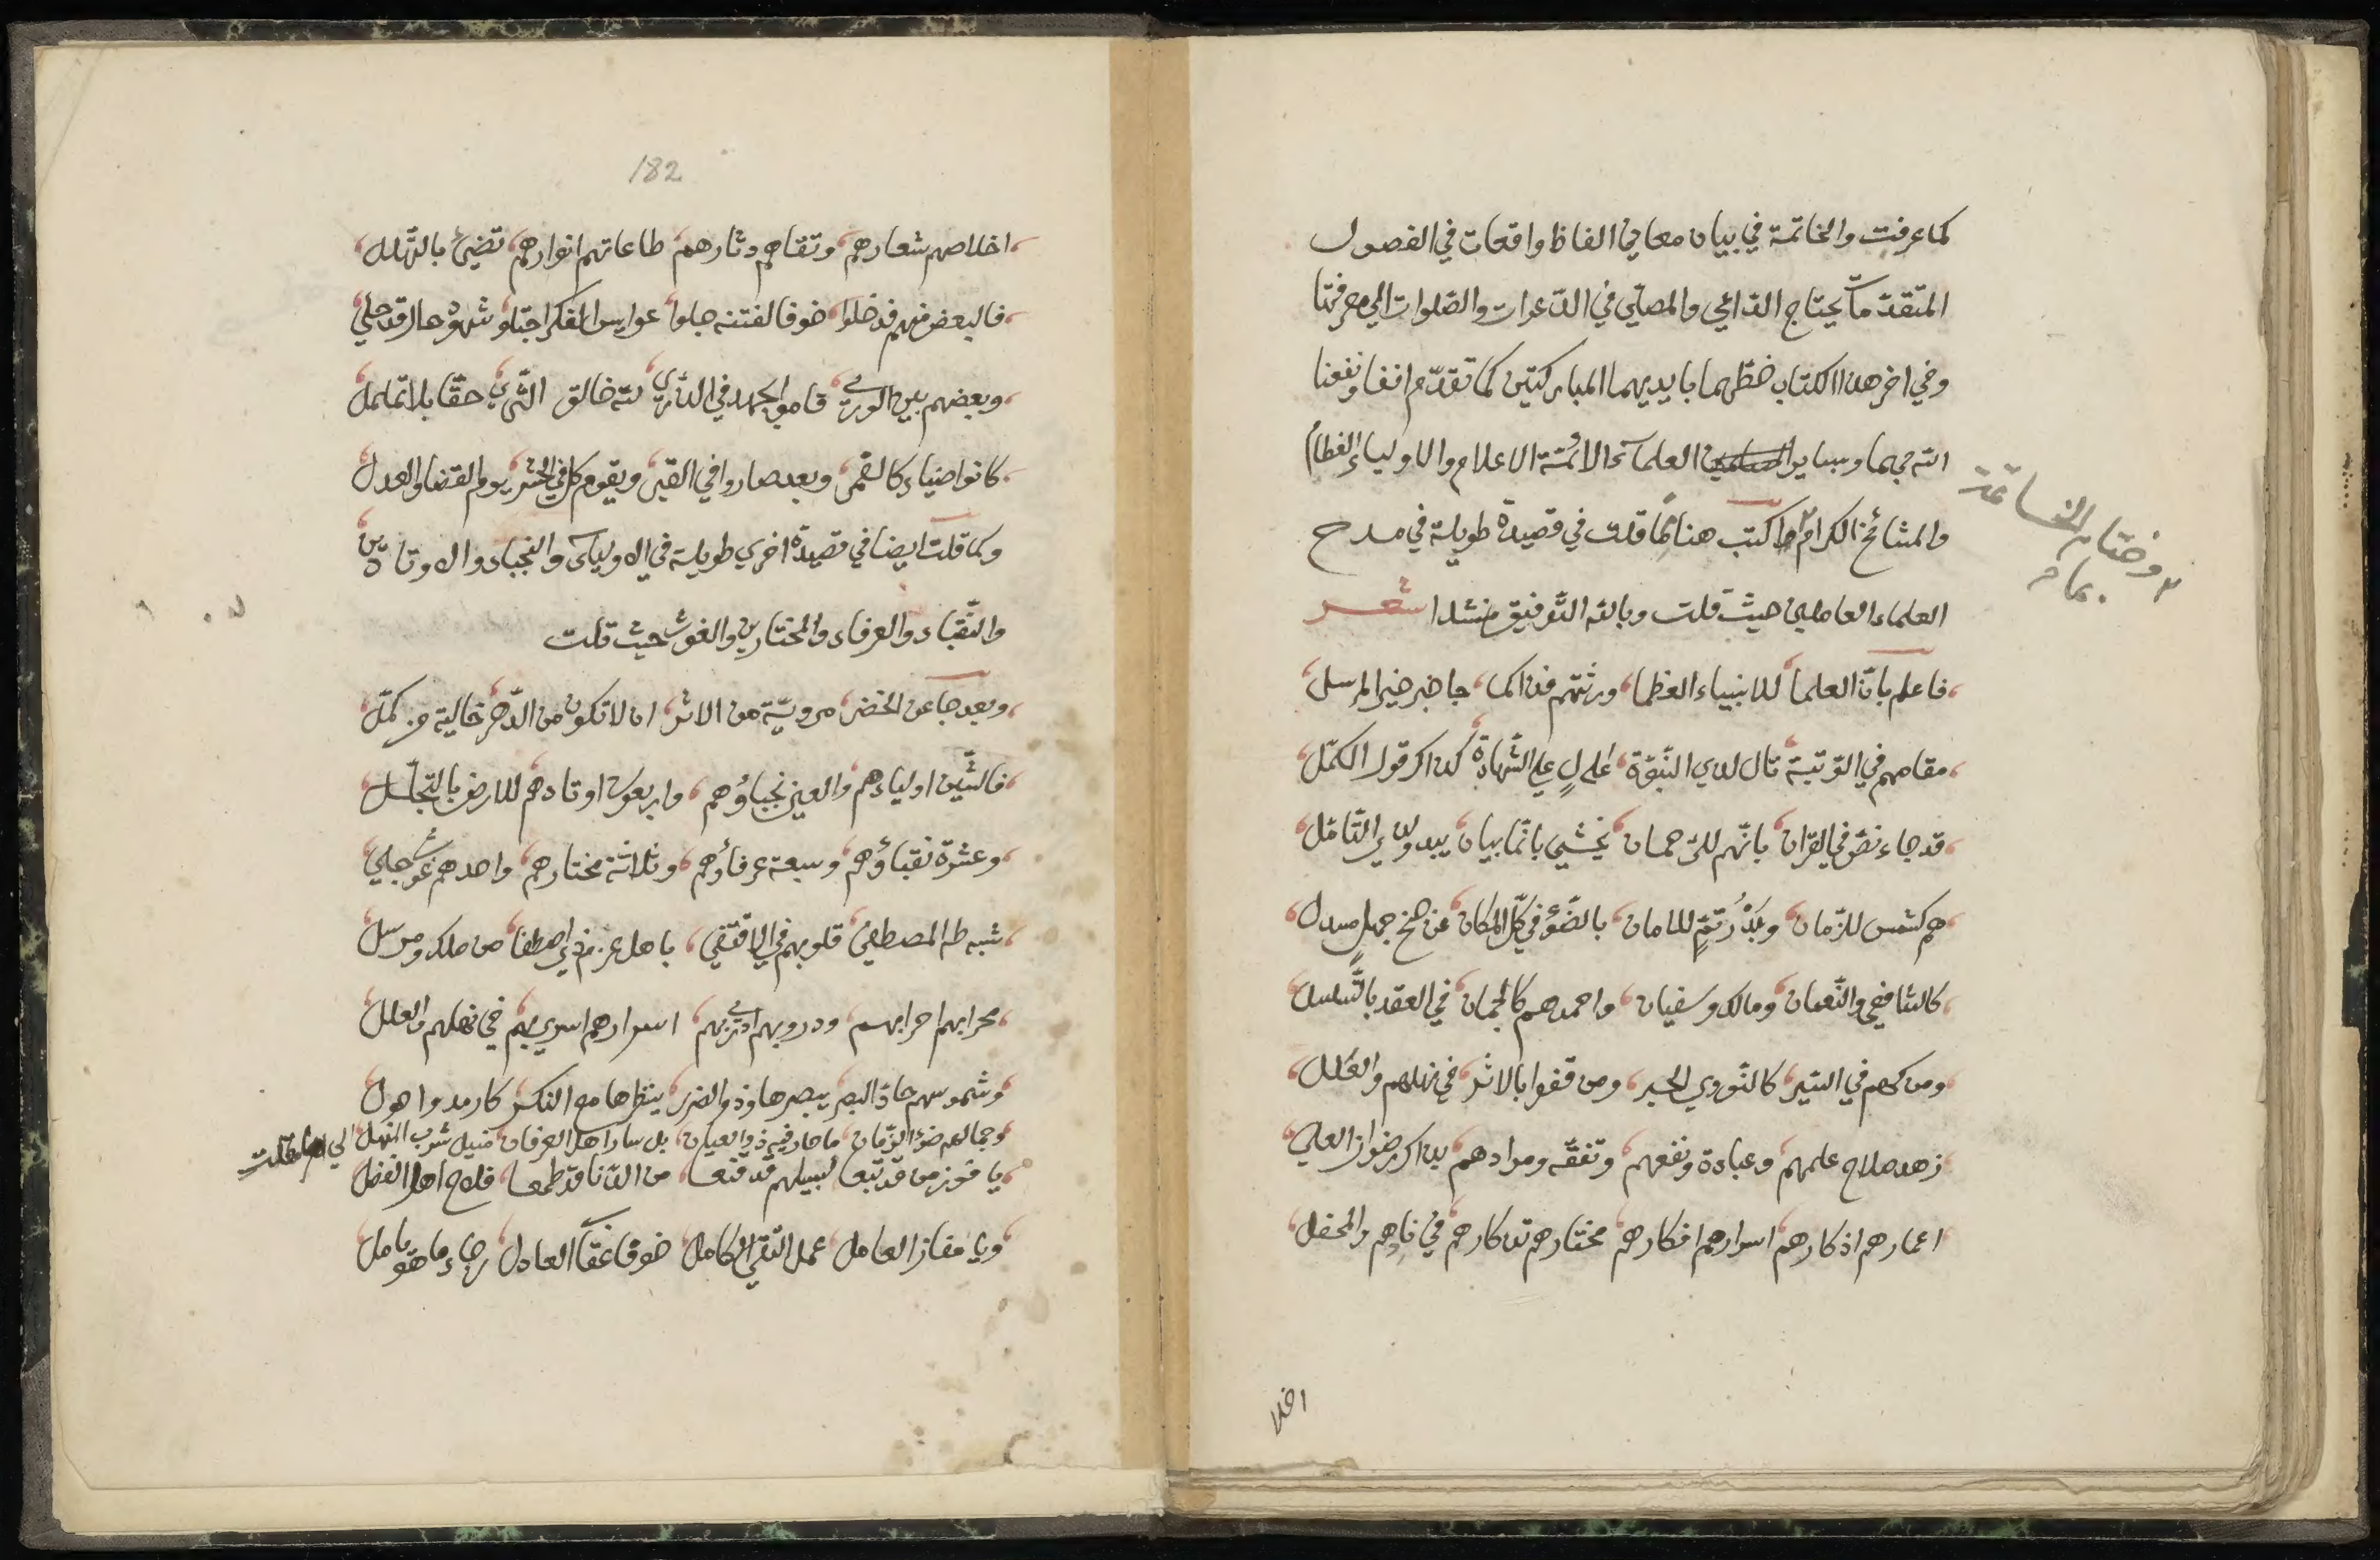 كما عرفت والخاتمة في بيان معاني الفاظ واقعات في الفصول
المتقدمات يحتاج الدّاعي والمصلّي في الدّعوات والصّلوات الي معرفتها
وفي اخر هذا الكتاب خطّهما بايديهما المباركتين كما تقدّم انفا ونفعنا
الله بهما وبساير العلماء الائمّة الاعلام والاولياء العظام
والمشائخ الكرام ٢ واكتب هنا ممّا قلت في قصيدة طويلة في مدح
٢ وختام الساعة
بمام
العلماء العاملين حيث قلت وبالله التّوفيق منشدا شعر
فاعلم بانّ العلما للانبياء العظما ورثتهم فذا كما جا خبر خير المرسل
مقامهم في الرّتبة تال لذي النّبوّة عال علي الشّهادة كذا كر قول الكمّل
قد جاء نصّ في القران بانّهم للرّحمان يخشي بانّما بيان يبدو لذي التّامّل
هم كشمس للزّمان وبدر تمّ للامان بالضّوء في كلّ المكان عن جنح جهل مسدل
كالشافعي والنّعمان ومالك وسفيان واحمد هم كالجمان في العقد بالتّسلسل
ومن كهم في السّير كالنّووي الحبر ومن قفوا بالاثر في نهلهم والعلل
زهد صلاح علمهم وعبادة ونفعهم وتفقّه ومرادهم بذاك رضوان العلي
اعمارهم اذكارهم اسرارهم افكارهم مختارهم تذكارهم في ناديهم والمحفل
اخلا
182
اخلاصهم شعارهم وتقاهم دثارهم طاعاتهم انوارهم تضيئ بالتّهلل
فالبعض منهم قد خلوا خوفا لفتنه جلوا عوايس الفكر اجتلوا شهودها لقد حلي
وبعضهم بين الوري قاموا بجهد في الذّري لله خالق الثّري حقّا بلا تململ
كانوا ضياء كالقمر وبعد صاروا في القبر ويقوم كل في الحشر يوم القضا والعدل
وكما قلت ايضا في قصيدة اخري طويلة في الاولياء والنجباء والاوتاد
والنّقباء والعرفاء والمختارين والغوث حيث قلت
وبعد جا عن الخضر مرويّة من الاثر ان لا تكون من الدّهر خالية من كمّل
فالشّين اولياءهم والعين نجباؤهم واربعون اوتادهم للارض بالتّجلّل
وعشرة نقباؤهم وسبعة عرفاؤهم وثلاثة مختارهم واحدهم غوث جلي
شبه طه المصطفي قلوبهم في الاقتفي باهل عزم ذي اصطفا من ملك ومرسل
محرابهم احرابهم ودروبهم ادري بهم اسرارهم اسري بهم في نهلهم والعلل
وشموسهم حاذ البصر يبصرها وذو الضرر ينظرها مع النكر كارمد واحول
وجمالهم ضوء الزّمان ما حار فيه ذو العيان بل سار اهل العرفان منيل شرب النهل الي ان قلت
يا فوز من قد تبعا لسبيلهم قد قنعا من الدّنا قد طمعا فلاح اهل الفضل
ويا مفاز العامل عمل التّقيّ الكامل خوفا عقاب العادل رجاء ما هو يامل